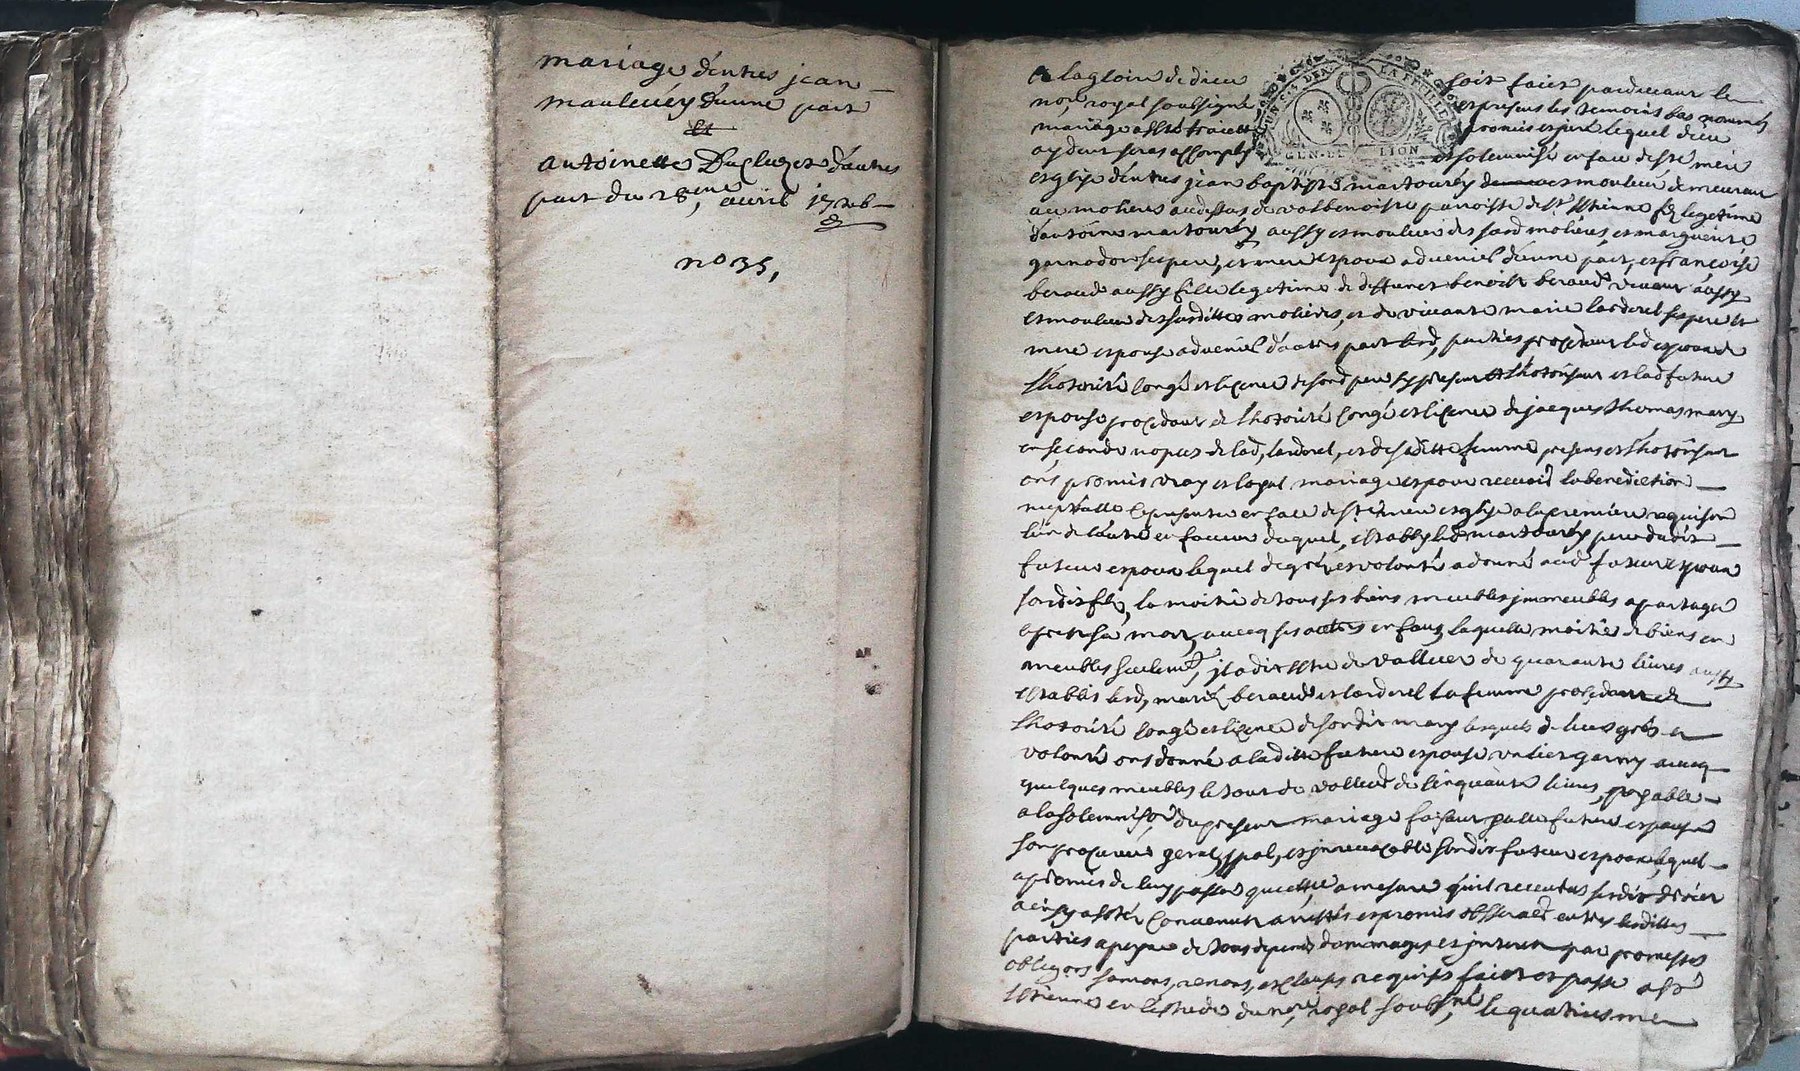 mariage d'entres jean
mauleuey d'eune part
et
antoinette Ducluzet d'autres
part du 28,eme auril
no 35,
A la gloire de dieu soit faict pardeuant le
nore, royal soubsigné et presens les temoins bas nommés
mariage a esté traicté promis et juré lequel dieu
aydant seras accomply et solemnisé en face de ste mere
esglize d'entres jean baptiste martourey esmouleur demeurant
aux molieres au dessus de valbenoiste paroisse de st. estienne fils legetime
d'antoine martourey aussy esmouleur des. molieres, et margueritte
ses pere, et mere espoux aduenir d'eune part, et françoise
beraud aussy fille legetime de deffunct benoist beraud viuant aussy
esmouleur desdittes molieres, et de viuante marie larderel ses pere et
mere espouse aduenir d'autres part lesd, parties procedant led espoux de
l'hotorité congé et licence de sond pere icy present et l'hotorisant et lad future
espouse procedant de l'hotorité congé et licence de jacques thomas mary
en seconde nopces de lad, larderel, et de saditte femme presens et l'hotorisant
ont promis vray et loyal mariage et pour receuoir la benediction
nuptialle se presenter en face de ste mere esglize a la premiere requisition
l'un de l'autre en faueur duquel, estably led martourey pere dudit
futeur espoux lequel de gré, et volonté a donné aud futeur espoux
sondit fils, la moitié de tous ses biens meubles jmmeubles a partager
apres sa mort, auecq ses autres enfans laquelle moitié de biens en
meubles seulemt, jl a dit estre de valleur de quarante liures aussy
establis lesd, marié beraud et larderel sa femme procedant de
l'hotorité congé et licence de sondit mary lesquels de leurs grés et
volonté ont donné a laditte future espouse vn lict garny auecq
quelques meubles le tout de valleur de cinquante liures, payable
a la solemnison, du present mariage faisant pa lle future espouse
son procureur geral, spal, et jrreuocable sondit futeur espoux, lequel
a promis de luy passer quitte a mesure qu'il receuras
ainsy a esté conuenut arrettés et promis obseruer entres lesdittes
parties a peyne de tous depens dommages et jnterest par promesses
obligons, renons, et clauses requises faict et passé a st
estienne en l'estude du nore, royal soubsné, le quatriesme